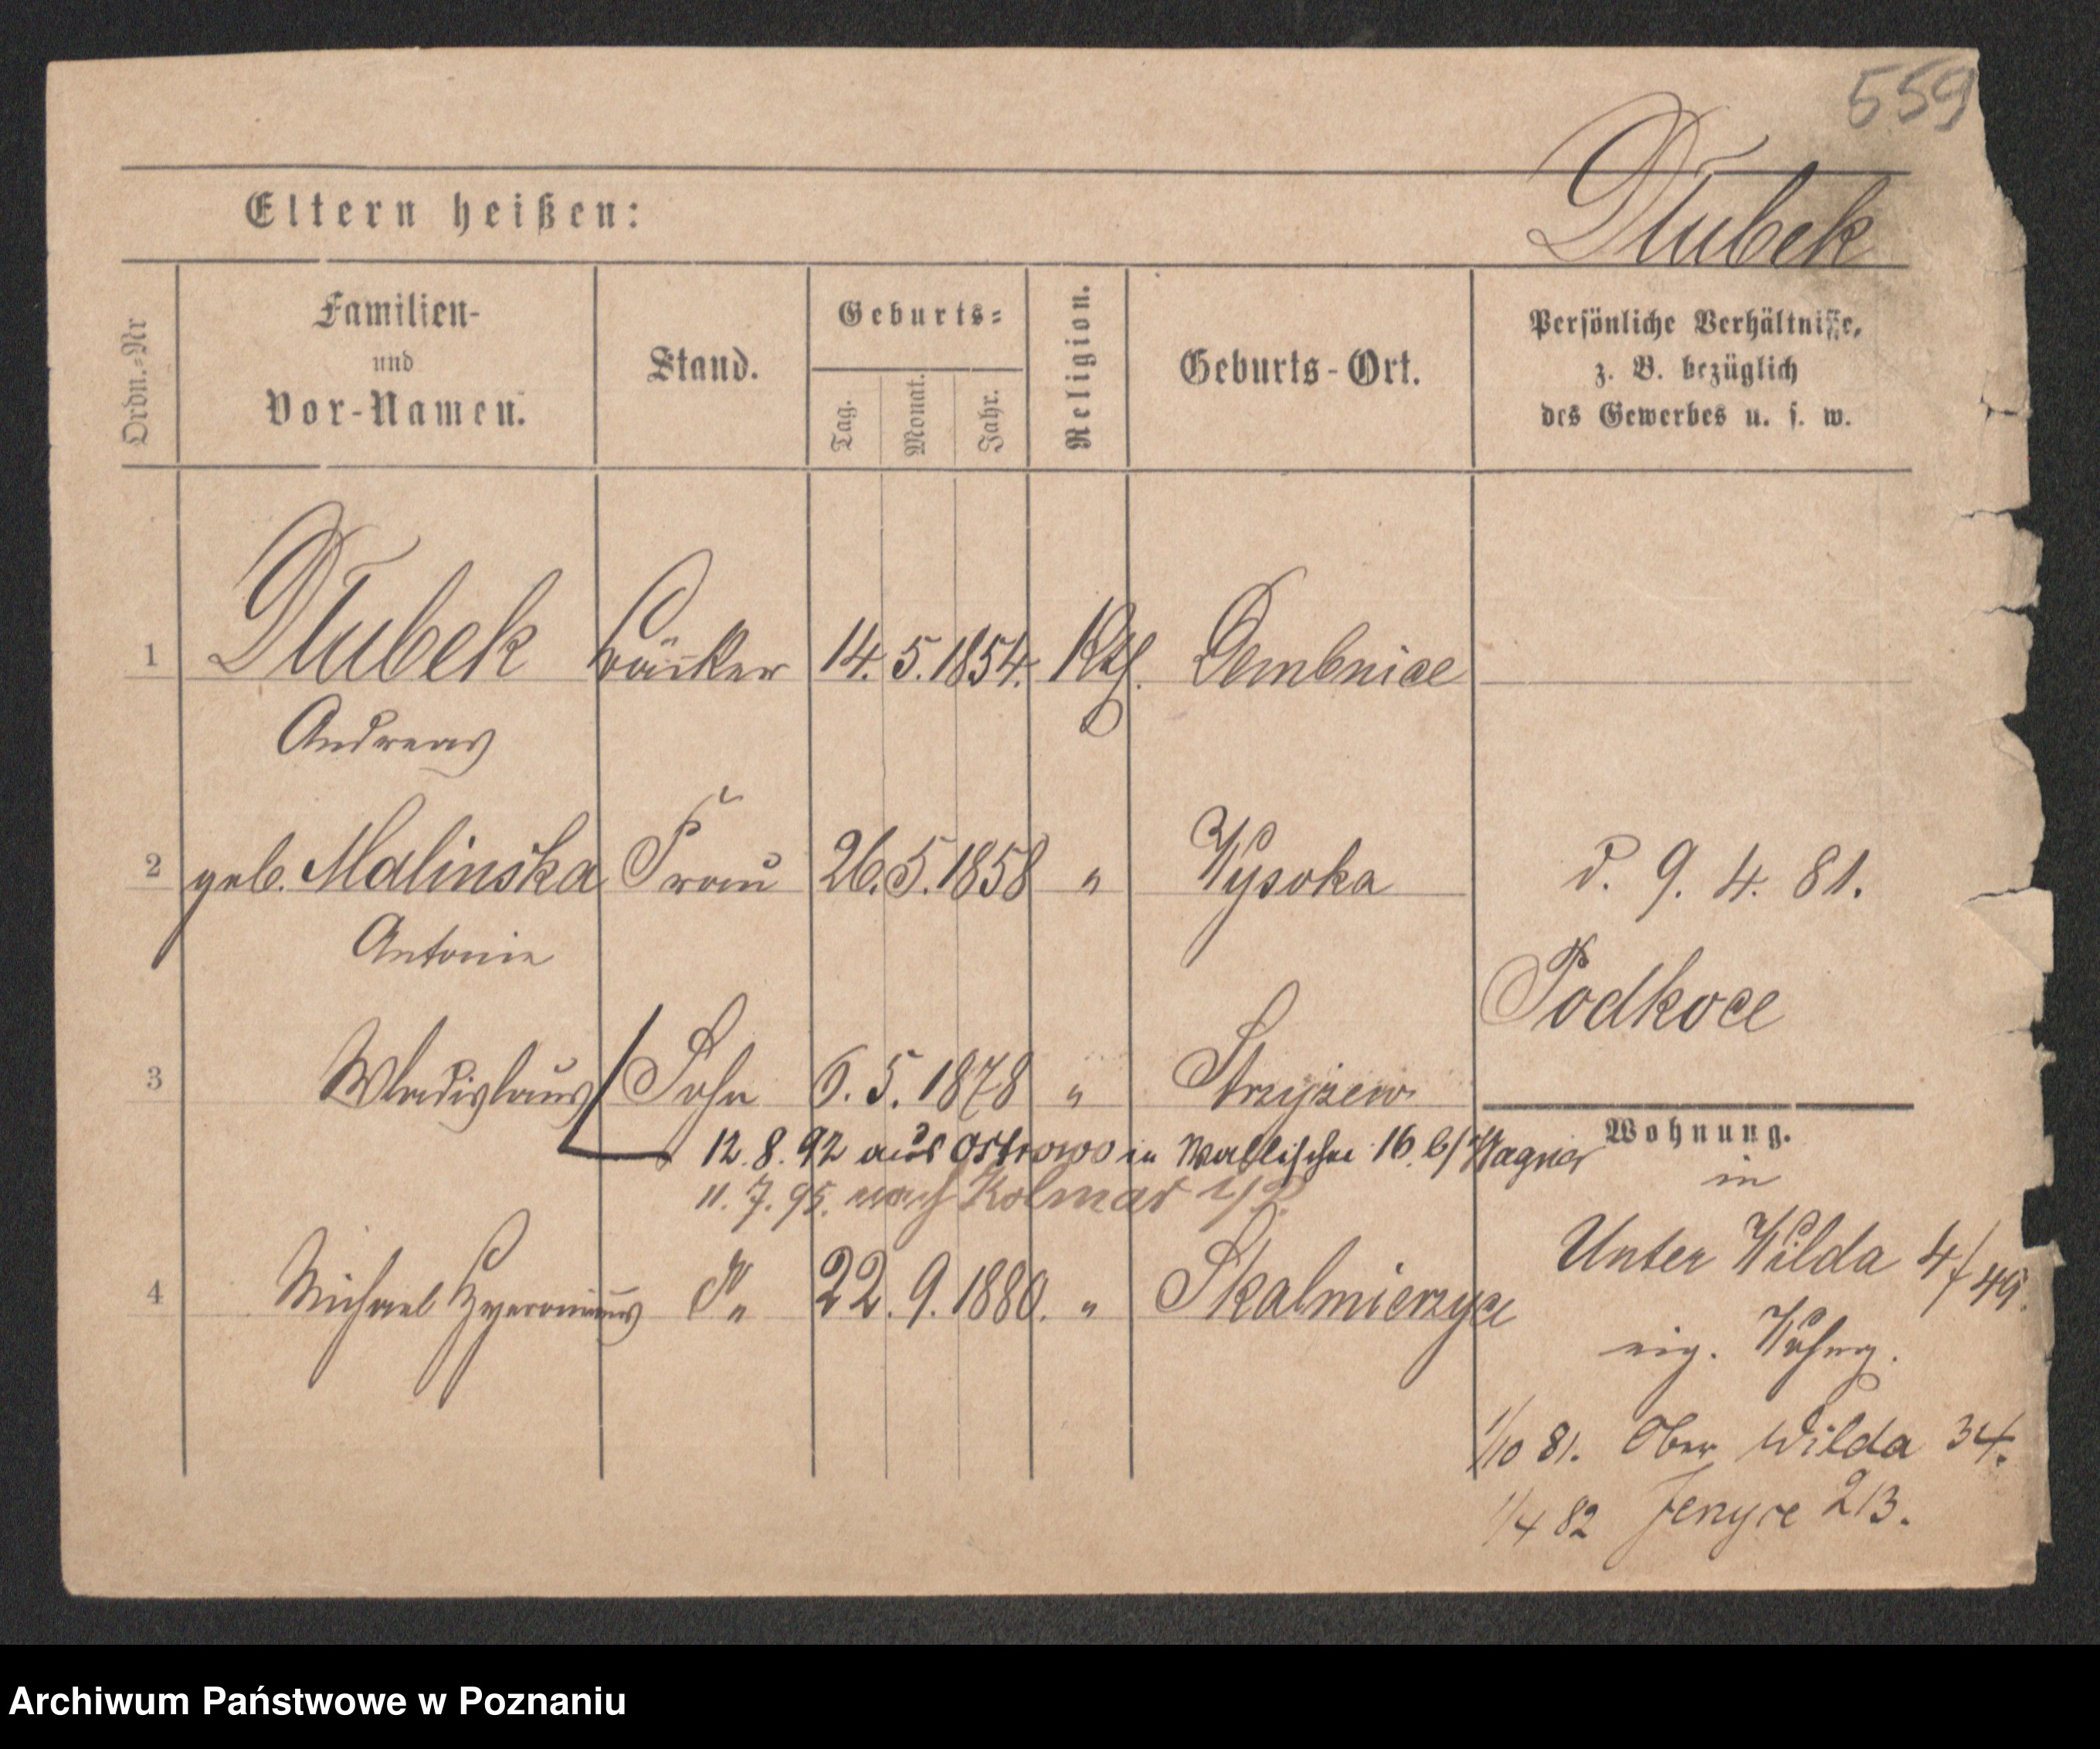 559
Dłubek
Eltern heißen:
Ordn.=Nr
Familien-
und
Vor-Namen.
Stand.
Geburts=
Tag.
Monat.
Jahr.
Religion.
Geburts-Ort.
Persönliche Verhältnisse,
z. B. bezüglich
des Gewerbes u. s. w.
1 Dłubek Bäcker 14. 5. 1854. Kth. Dembnice
Andreas
2 geb. Malinska Frau 26. 5. 1858 " Wysoka d. 9. 4. 81.
Antonie
Podkoce
3 Wladislaus Sohn 6. 5. 1878 " Strzyzew
Wohnung.
12. 8. 92 aus Ostrowo in Wallischei 16. b/ Wagner
in
11. 7. 95. nach Kolmar i/P.
Unter Wilda 4/49.
4 Michael Hyeronimus S. " 22. 9. 1880. " Skalmierzyce
eig. Wohng.
1/10 81. Ober Wilda 34.
1/4 82 Jerzyce 213.
Archiwum Państwowe w Poznaniu